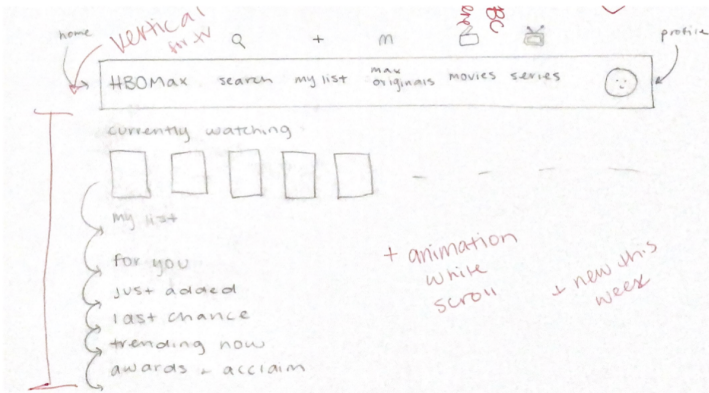 home
vertical
for tv
+
m
BC
profile
HBOMax search my list max originals movies series
currently watching
my list
for you
just added
last chance
trending now
awards + acclaim
+ animation
while
scroll
+ new this
week